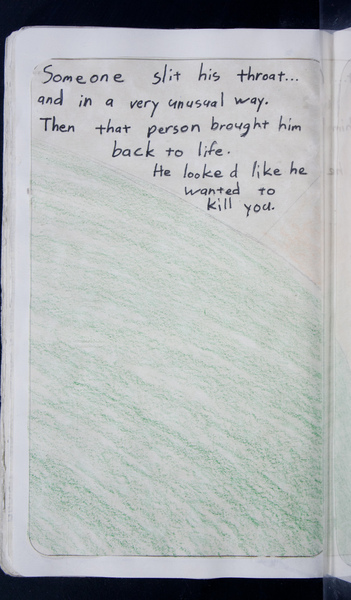 Someone slit his throat...
and in a very unusual way.
Then that person brought him
back to life.
He looked like he
wanted to
kill you.